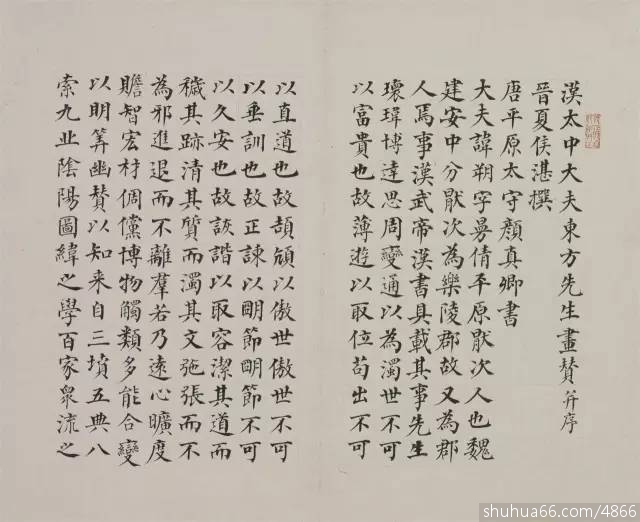 漢太中大夫東方先生畫贊并序
晉夏侯湛撰
唐平原太守顏真卿書
大夫諱朔字曼倩平原厭次人也魏
建安中分厭次為樂陵郡故又為郡
人焉事漢武帝漢書具載其事先生
瓌瑋博達思周變通以為濁世不可
以富貴也故薄遊以取位苟出不可
以直道也故頡頏以傲世傲世不可
以垂訓也故正諫以明節明節不可
以久安也故詼諧以取容潔其道而
穢其跡清其質而濁其文弛張而不
為邪進退而不離羣若乃遠心曠度
贍智宏材倜儻博物觸類多能合變
以明筭幽贊以知来自三墳五典八
索九丘陰陽圖緯之學百家眾流之
shuhua66.com/4866